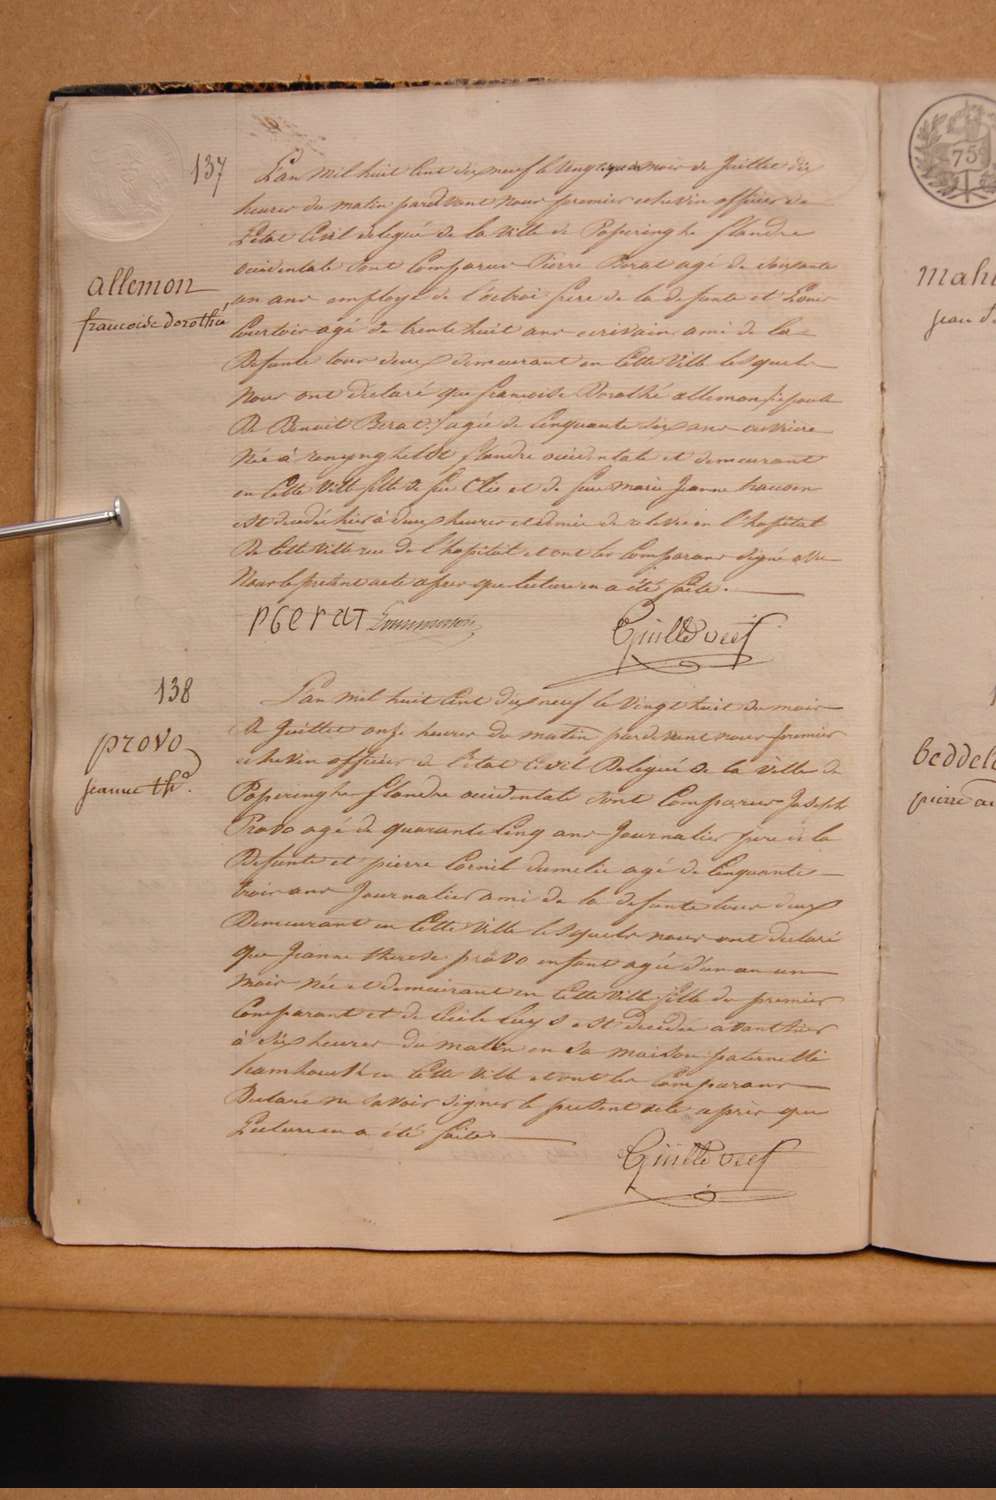 137
L'an mil huit Cent dix neuf le Vingt du mois de Juillet dix
heures du matin pardevant nous premier echevin officier de
L'état Civil delegué de la Ville de Poperinghe flandre
occidentale sont Comparus Pierre Berat agé de soixante
allemon
francoise dorothée
un ans employé de l'octroi frere de la defunte et Louis
Courtois agé de trente huit ans ecrivain ami de la
Defunte tous deux demeurant en Cette Ville lesquels
Nous ont déclaré que francoise Dorothé allemon Epouse
De Benoit Berat agée de Cinquante six ans ouvriere
Née á renynghelst flandre occidentale et demeurant
en Cette Ville fille de feu et de feue Marie Jeanne
est decedée hier á deux heures de relevée en l'hopital
De Cette Ville rue de l'hopital et ont les Comparans signé avec
Nous le présent acte apres que lecture en a été faite.
PBerat
Guille
138
L'an Mil huit Cent dix neuf le Vingt huit du mois
provo
jeanne th.ᵉ
De Juillet onze heures du matin pardevant nous premier
echevin officier de l'état Civil Delegué de la Ville de
Poperinghe flandre occidentale sont Comparus Joseph
Provo agé de quarante Cinq ans Journalier pere de la
Defunte et pierre Cornil dumelie agé de Cinquante
trois ans Journalier ami de la defunte tous deux
Demeurant en Cette Ville lesquels nous ont declaré
que Jeanne therese provo enfant agée d'un an un
mois née et demeurant en Cette Ville fille du premier
Comparant et de Cecile est decedée avant hier
á six heures du matin en sa maison paternelle
en Cette Ville et ont les Comparans
Declaré ne savoir signer le present acte apres que
Lecture en a été faite.
Guille
75
mah
jean
beddel
pierre